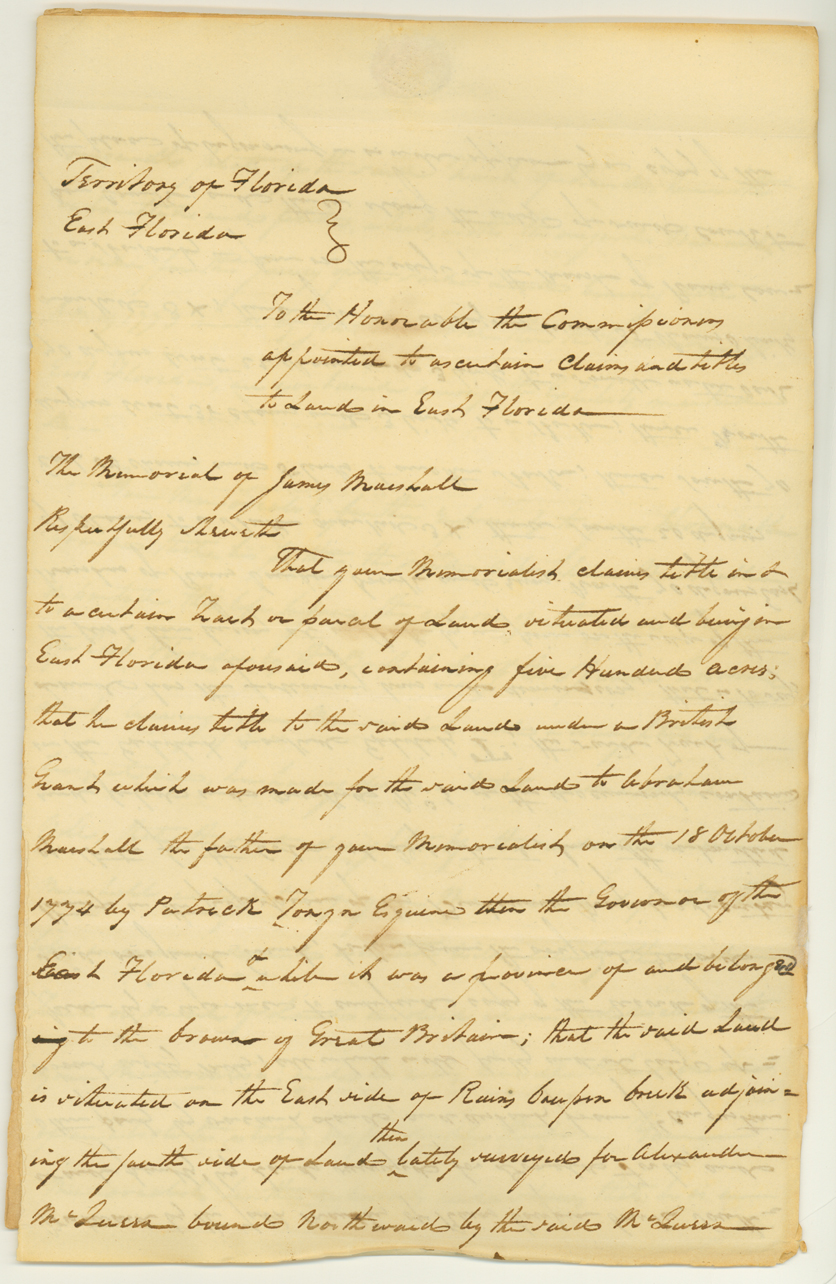 Territory of Florida
East Florida
To the Honorable the Commissioners
appointed to ascertain Claims and titles
to Land in East Florida
The Memorial of James Marshall
Respectfully Sheweth
That your Memorialist claims title in &
to a certain tract or parcel of Land, situated and being in
East Florida aforesaid, containing five Hundred acres;
that he claims title to the said Land under a British
Grant which was made for the said Land to Abraham
Marshall the father of your Memorialist, on the 18 October
1774 by Patrick Tonyn Esquire then the Governor of the
East Florida while it was a province of and belonged
to the Crown of Great Britain; that the said Land
is situated on the East side of Rains Cowpen Creek adjoin=
ing the south side of Land then lately surveyed for Alexander
McQueen bound Northward by the said McQueen